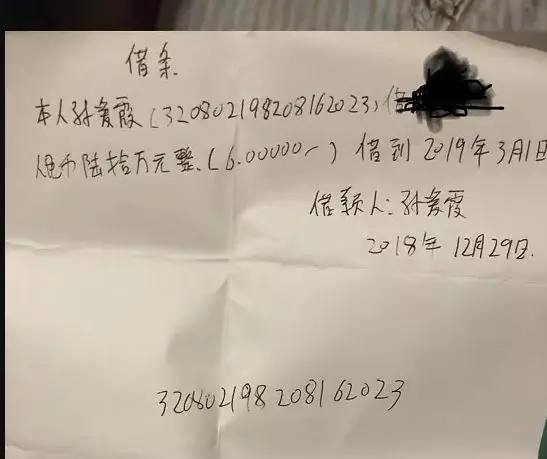 借条
本人孙爱霞(320802198208162023)借
人民币陆拾万元整.(6.00000~) 借到 2019年3月1日
借款人:孙爱霞
2018年 12月29日.
320802198208162023